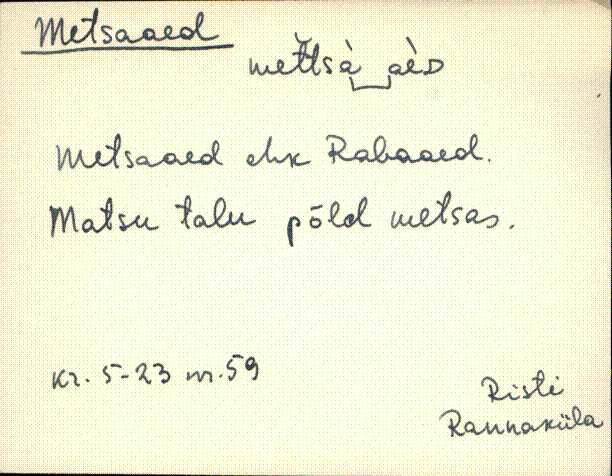 Metsaaed
met̆tsà‿aèᴅ
Metsaaed ehk Rabaaed.
Matsu talu põld metsas.
Kr. 5-23 nr. 59
Risti
Rannaküla